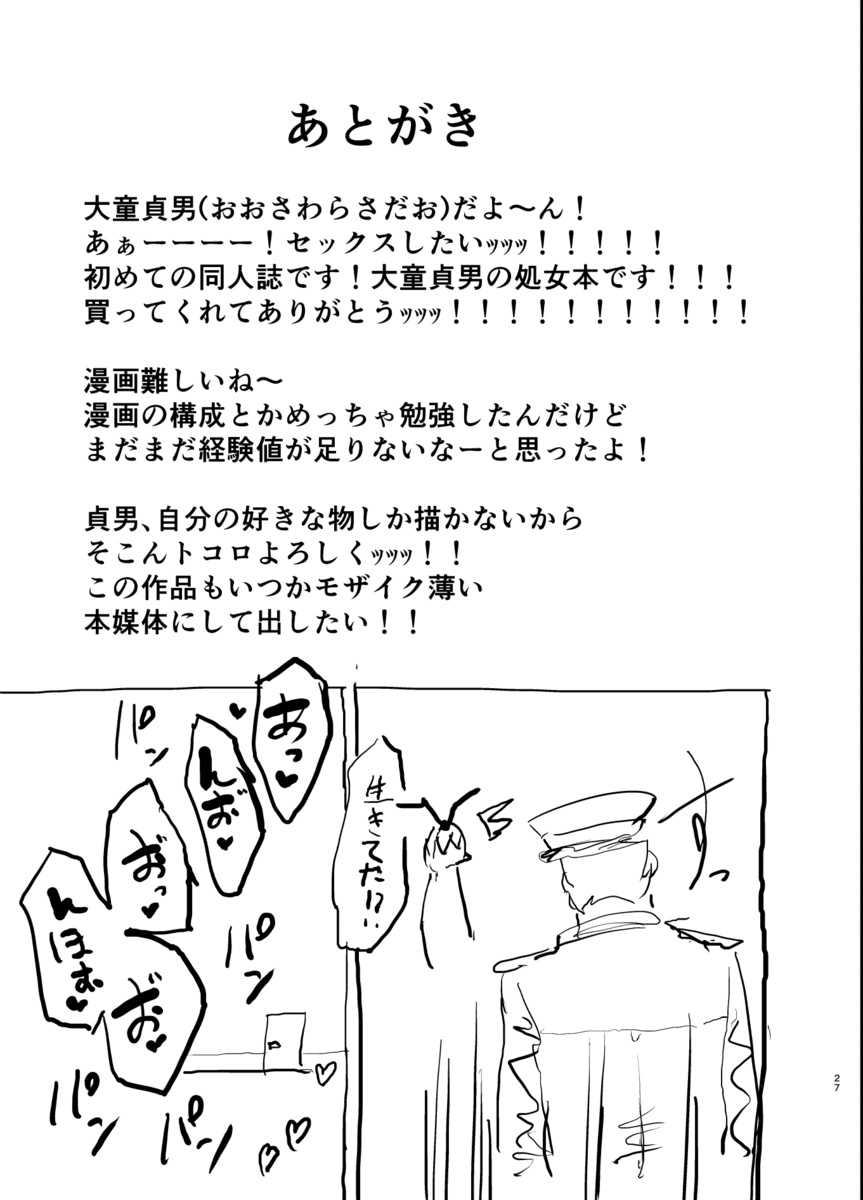 あとがき
大童貞男(おおさわらさだお)だよ～ん！
あぁーーーー！セックスしたいｯｯｯ！！！！！
初めての同人誌です！大童貞男の処女本です！！！
買ってくれてありがとうｯｯｯ！！！！！！！！！！！
漫画難しいね～
漫画の構成とかめっちゃ勉強したんだけど
まだまだ経験値が足りないなーと思ったよ！
貞男、自分の好きな物しか描かないから
そこんトコロよろしくｯｯｯ！！
この作品もいつかモザイク薄い
本媒体にして出したい！！
生きてた!?
あっ♥
んお♥
おっ♥
んほお♥
お♥
パン
パン
パン
パン
27